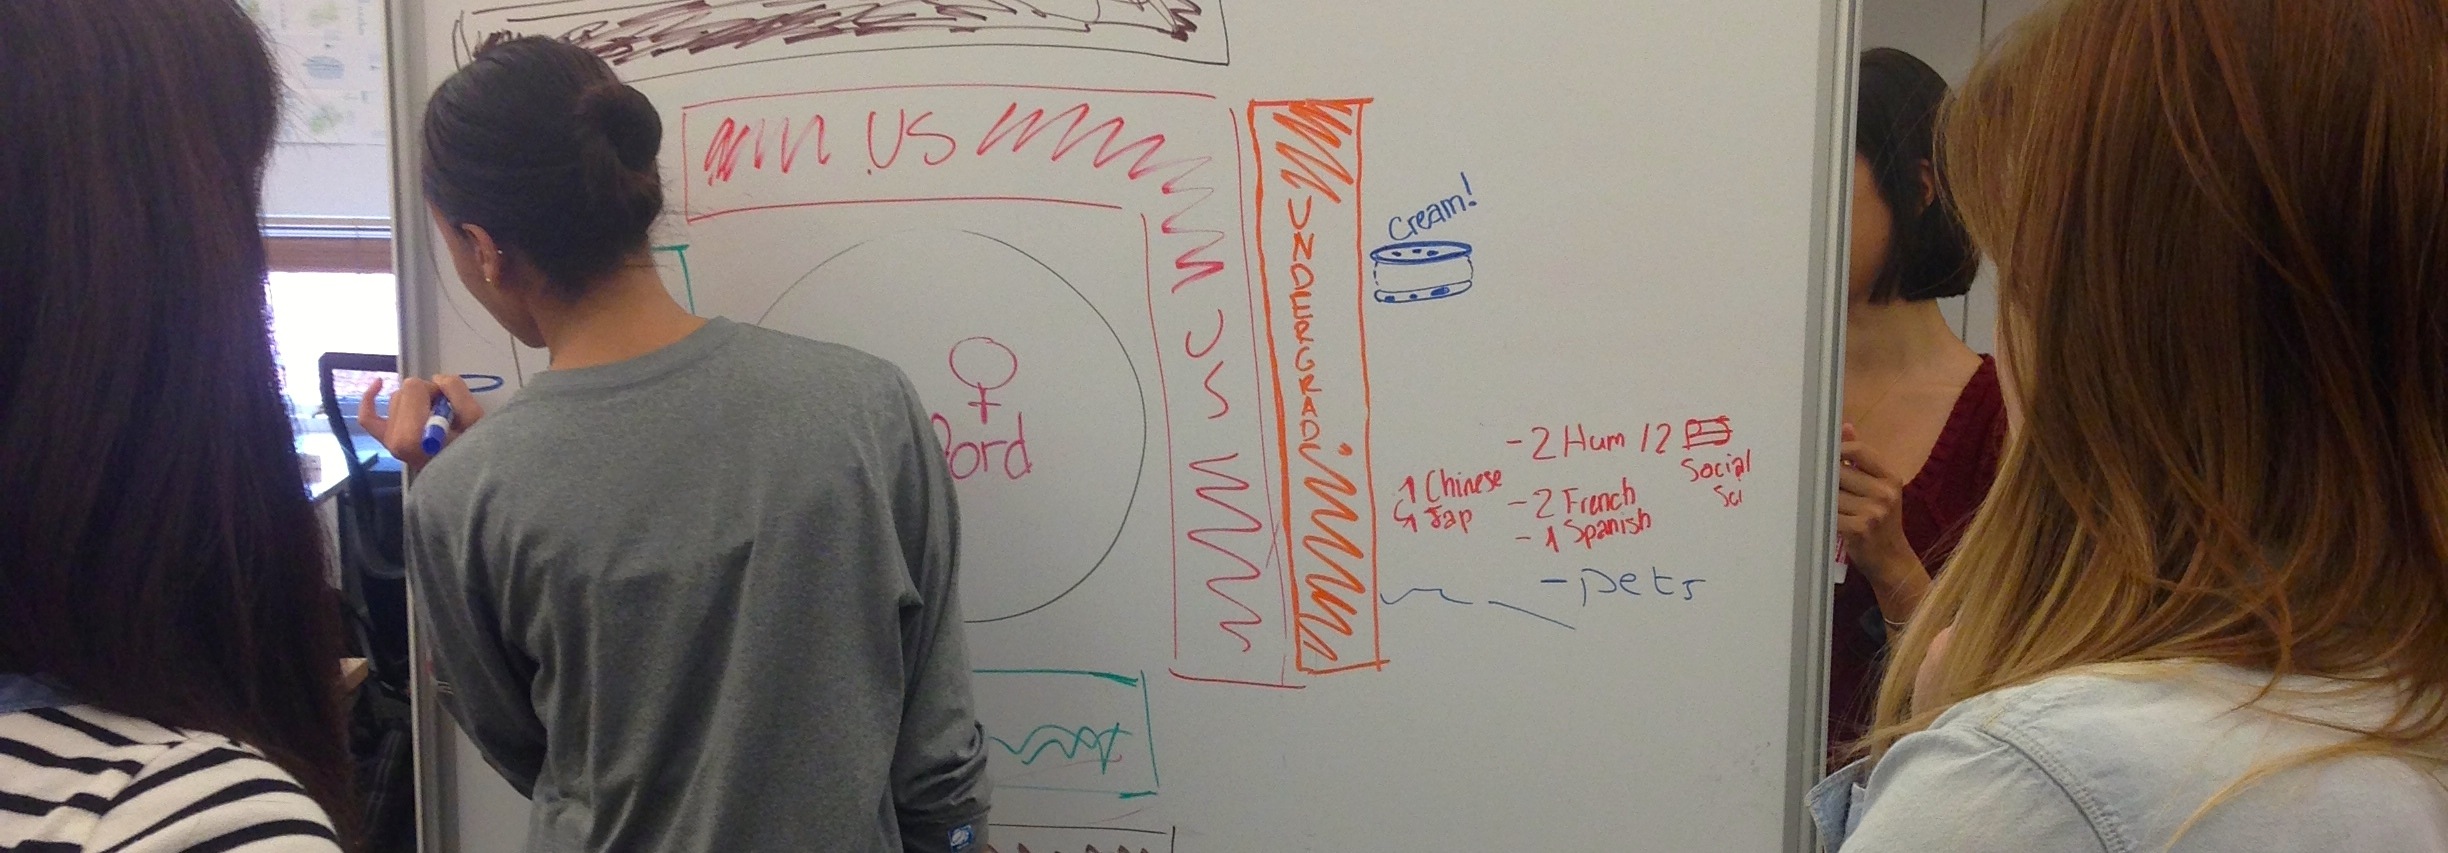 US
US
UNDERGRAD
Cream!
- 2 Hum / 2
Social
Sci
1 Chinese
1 Jap
- 2 French
- 1 Spanish
- pets
ord